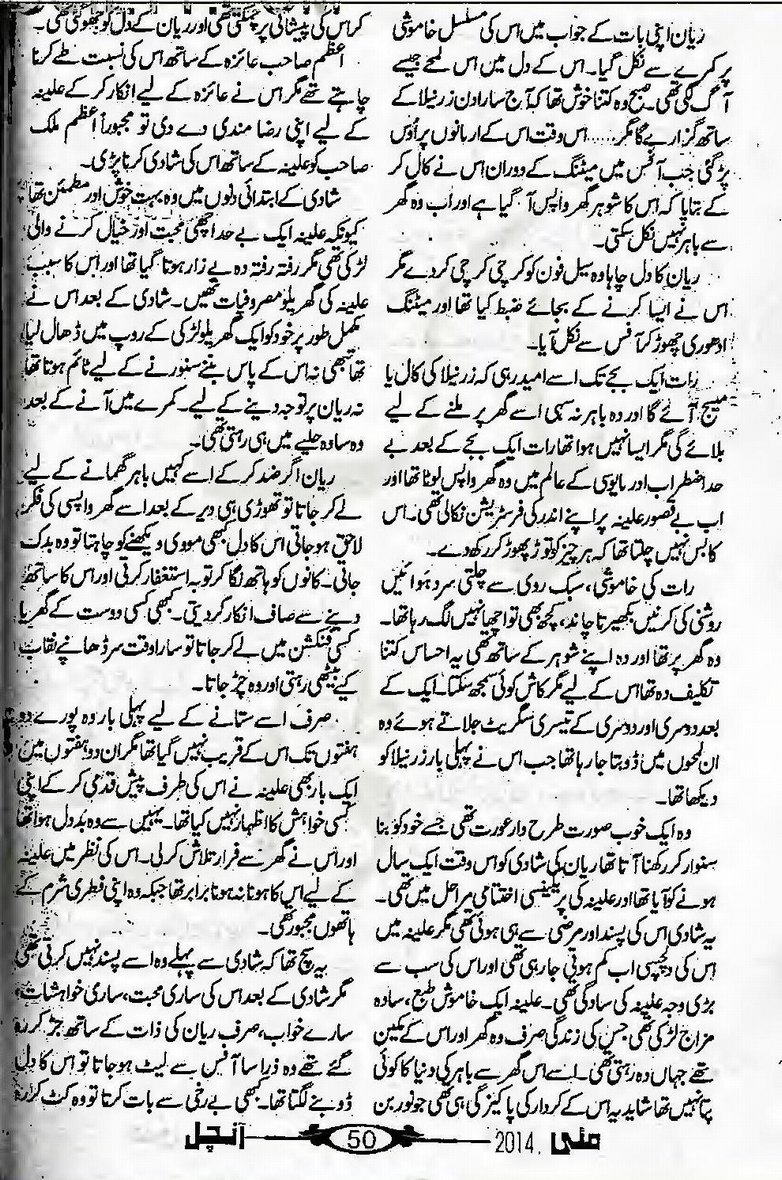 ریان اپنی بات کے جواب میں اس کی مسلسل خاموشی
پر کمرے سے نکل گیا۔ اس کے دل میں اس لمحے جیسے
آگ لگی تھی۔ صبح وہ کتنا خوش تھا کہ آج سارا دن زرنیلا کے
ساتھ گزارے گا مگر..... اس وقت اس کے ارمانوں پر اوس
پڑ گئی جب آفس میں میٹنگ کے دوران اس نے کال کر
کے بتایا کہ اس کا شوہر گھر واپس آ گیا ہے اور اب وہ گھر
سے باہر نہیں نکل سکتی۔
ریان کا دل چاہا وہ سیل فون کو کرچی کرچی کر دے مگر
اس نے ایسا کرنے کے بجائے ضبط کیا تھا اور میٹنگ
ادھوری چھوڑ کر آفس سے نکل آیا۔
رات ایک بجے تک اسے امید رہی کہ زرنیلا کی کال یا
میسج آئے گا اور وہ باہر نہ سہی اسے گھر پر ملنے کے لیے
بلائے گی مگر ایسا نہیں ہوا تھا رات ایک بجے کے بعد بے
حد اضطراب اور مایوسی کے عالم میں وہ گھر واپس لوٹا تھا اور
اب بے قصور علینہ پر اپنے اندر کی فرسٹریشن نکالی تھی۔ اس
کا بس نہیں چلتا تھا کہ ہر چیز کو توڑ پھوڑ کر رکھ دے۔
رات کی خاموشی، سبک روی سے چلتی سرد ہوائیں
روشنی کی کرنیں بکھیرتا چاند، کچھ بھی تو اچھا نہیں لگ رہا تھا۔
وہ گھر پر تھا اور وہ اپنے شوہر کے ساتھ تھی یہ احساس کتنا
تکلیف دہ تھا اس کے لیے مگر کاش کوئی سمجھ سکتا۔ ایک کے
بعد دوسری اور دوسری کے تیسری سگریٹ جلاتے ہوئے وہ
ان لمحوں میں ڈوبتا جا رہا تھا جب اس نے پہلی بار زرنیلا کو
دیکھا تھا۔
وہ ایک خوب صورت طرح دار عورت تھی جسے خود کو بنا
سنوار کر رکھنا آتا تھا ریان کی شادی کو اس وقت ایک سال
ہونے کو آیا تھا اور علینہ کی پریگنینسی اختتامی مراحل میں تھی۔
یہ شادی اس کی پسند اور مرضی سے ہی ہوئی تھی مگر علینہ میں
اس کی دلچسپی اب کم ہوتی جا رہی تھی اور اس کی سب سے
بڑی وجہ علینہ کی سادگی تھی۔ علینہ ایک خاموش طبع، سادہ
مزاج لڑکی تھی جس کی زندگی صرف وہ گھر اور اس کے مکین
تھے جہاں وہ رہتی تھی۔ اسے اس گھر سے باہر کی دنیا کا کوئی
پتا نہیں تھا شاید یہ اس کے کردار کی پاکیزگی ہی تھی جو نور بن
کر اس کی پیشانی پر چمکتی تھی اور ریان کے دل کو چھو گئی تھی۔
اعظم صاحب عائزہ کے ساتھ اس کی نسبت طے کرنا
چاہتے تھے مگر اس نے عائزہ کے لیے انکار کر کے علینہ
کے لیے اپنی رضا مندی دے دی تو مجبوراً اعظم ملک
صاحب کو علینہ کے ساتھ اس کی شادی کرنا پڑی۔
شادی کے ابتدائی دنوں میں وہ بہت خوش اور مطمئن تھا
کیونکہ علینہ ایک بے حد اچھی محبت اور خیال کرنے والی
لڑکی تھی مگر رفتہ رفتہ وہ بے زار ہوتا گیا تھا اور اس کا سبب
علینہ کی گھریلو مصروفیات تھیں۔ شادی کے بعد اس نے
مکمل طور پر خود کو ایک گھریلو لڑکی کے روپ میں ڈھال لیا
تھا تبھی نہ اس کے پاس بننے سنورنے کے لیے ٹائم ہوتا تھا
نہ ریان پر توجہ دینے کے لیے۔ کمرے میں آنے کے بعد
وہ سادہ حلیے میں ہی رہتی تھی۔
ریان اگر ضد کر کے اسے کہیں باہر گھمانے کے لیے
لے کر جاتا تو تھوڑی ہی دیر کے بعد اسے گھر واپسی کی فکر
لاحق ہو جاتی اس کا دل کبھی مووی دیکھنے کو چاہتا تو وہ بدک
جاتی۔ کانوں کو ہاتھ لگا کر توبہ استغفار کرتی اور اس کا ساتھ
دینے سے صاف انکار کر دیتی۔ کبھی کسی دوست کے گھر یا
کسی فنکشن میں لے کر جاتا تو سارا وقت سر ڈھانپے نقاب
کیے بیٹھی رہتی اور وہ چڑ جاتا۔
صرف اسے ستانے کے لیے پہلی بار وہ پورے دو
ہفتوں تک اس کے قریب نہیں گیا تھا مگر ان دو ہفتوں میں
ایک بار بھی علینہ نے اس کی طرف پیش قدمی کر کے اپنی
کسی خواہش کا اظہار نہیں کیا تھا۔ یہیں سے وہ بددل ہوا تھا
اور اس نے گھر سے فرار تلاش کر لی۔ اس کی نظر میں علینہ
کے لیے اس کا ہونا نہ ہونا برابر تھا جبکہ وہ اپنی فطری شرم کے
ہاتھوں مجبور تھی۔
یہ سچ تھا کہ شادی سے پہلے وہ اسے پسند نہیں کرتی تھی
مگر شادی کے بعد اس کی ساری محبت، ساری خواہشات،
سارے خواب، صرف ریان کی ذات کے ساتھ جڑ کر رہ
گئے تھے وہ ذرا سا آفس سے لیٹ ہو جاتا تو اس کا دل
ڈوبنے لگتا تھا۔ کبھی بے رخی سے بات کرتا تو وہ کٹ کر رہ
مئی 2014ء 50 آنچل